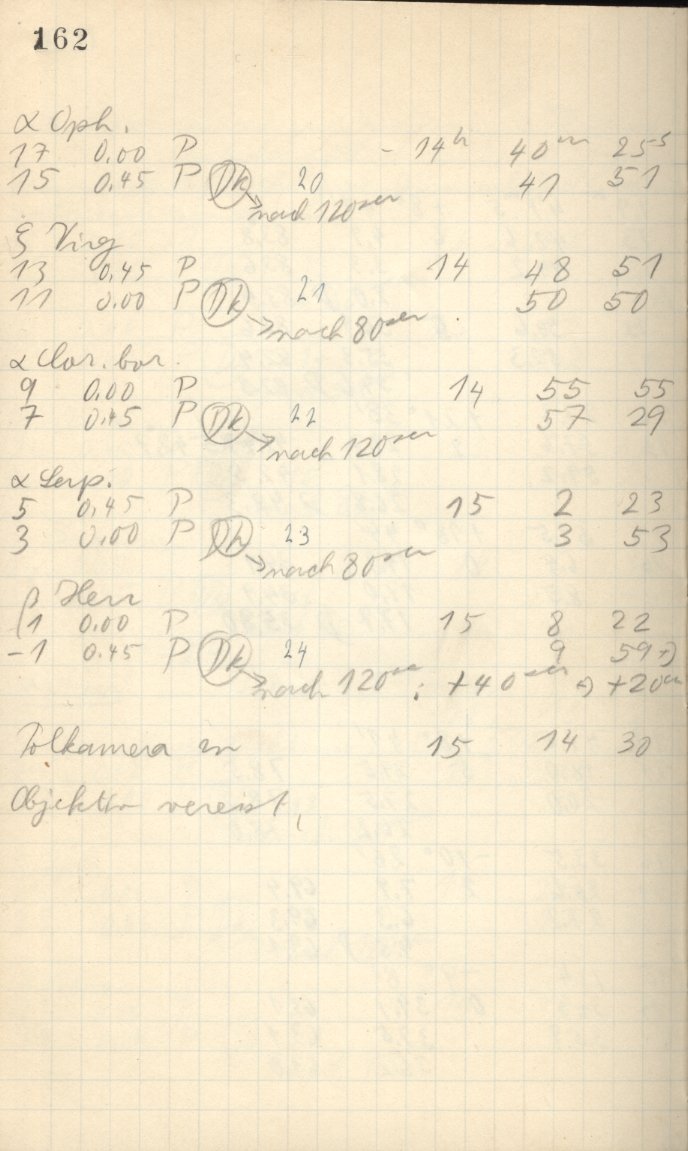 162
α Oph.
17 0.00 P - 14h 40m 25s
15 0.45 P Dk 20 41 51
→ nach 120sec
ξ Virg
13 0.45 P 14 48 51
11 0.00 P Dk 21 50 50
→ nach 80sec
α Cor. bor.
9 0.00 P 14 55 55
7 0.45 P Dk 22 57 29
→ nach 120sec
α Serp.
5 0.45 P 15 2 23
3 0.00 P Dk 23 3 53
→ nach 80sec
β Herc
1 0.00 P 15 8 22
-1 0.45 P Dk 24 9 59
→ nach 120sec ; +40sec +20
Polkamera 15 14 30
Objektiv vereist,